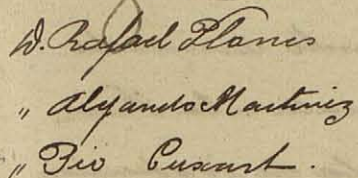 D. Rafael Planes
" Alejandro Martinez
" Pio Cuxart.